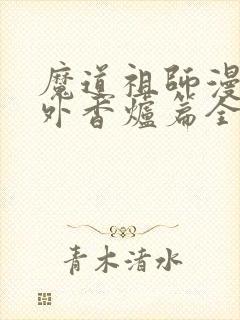 魔道祖師漫
外香爐篇全
青木清水